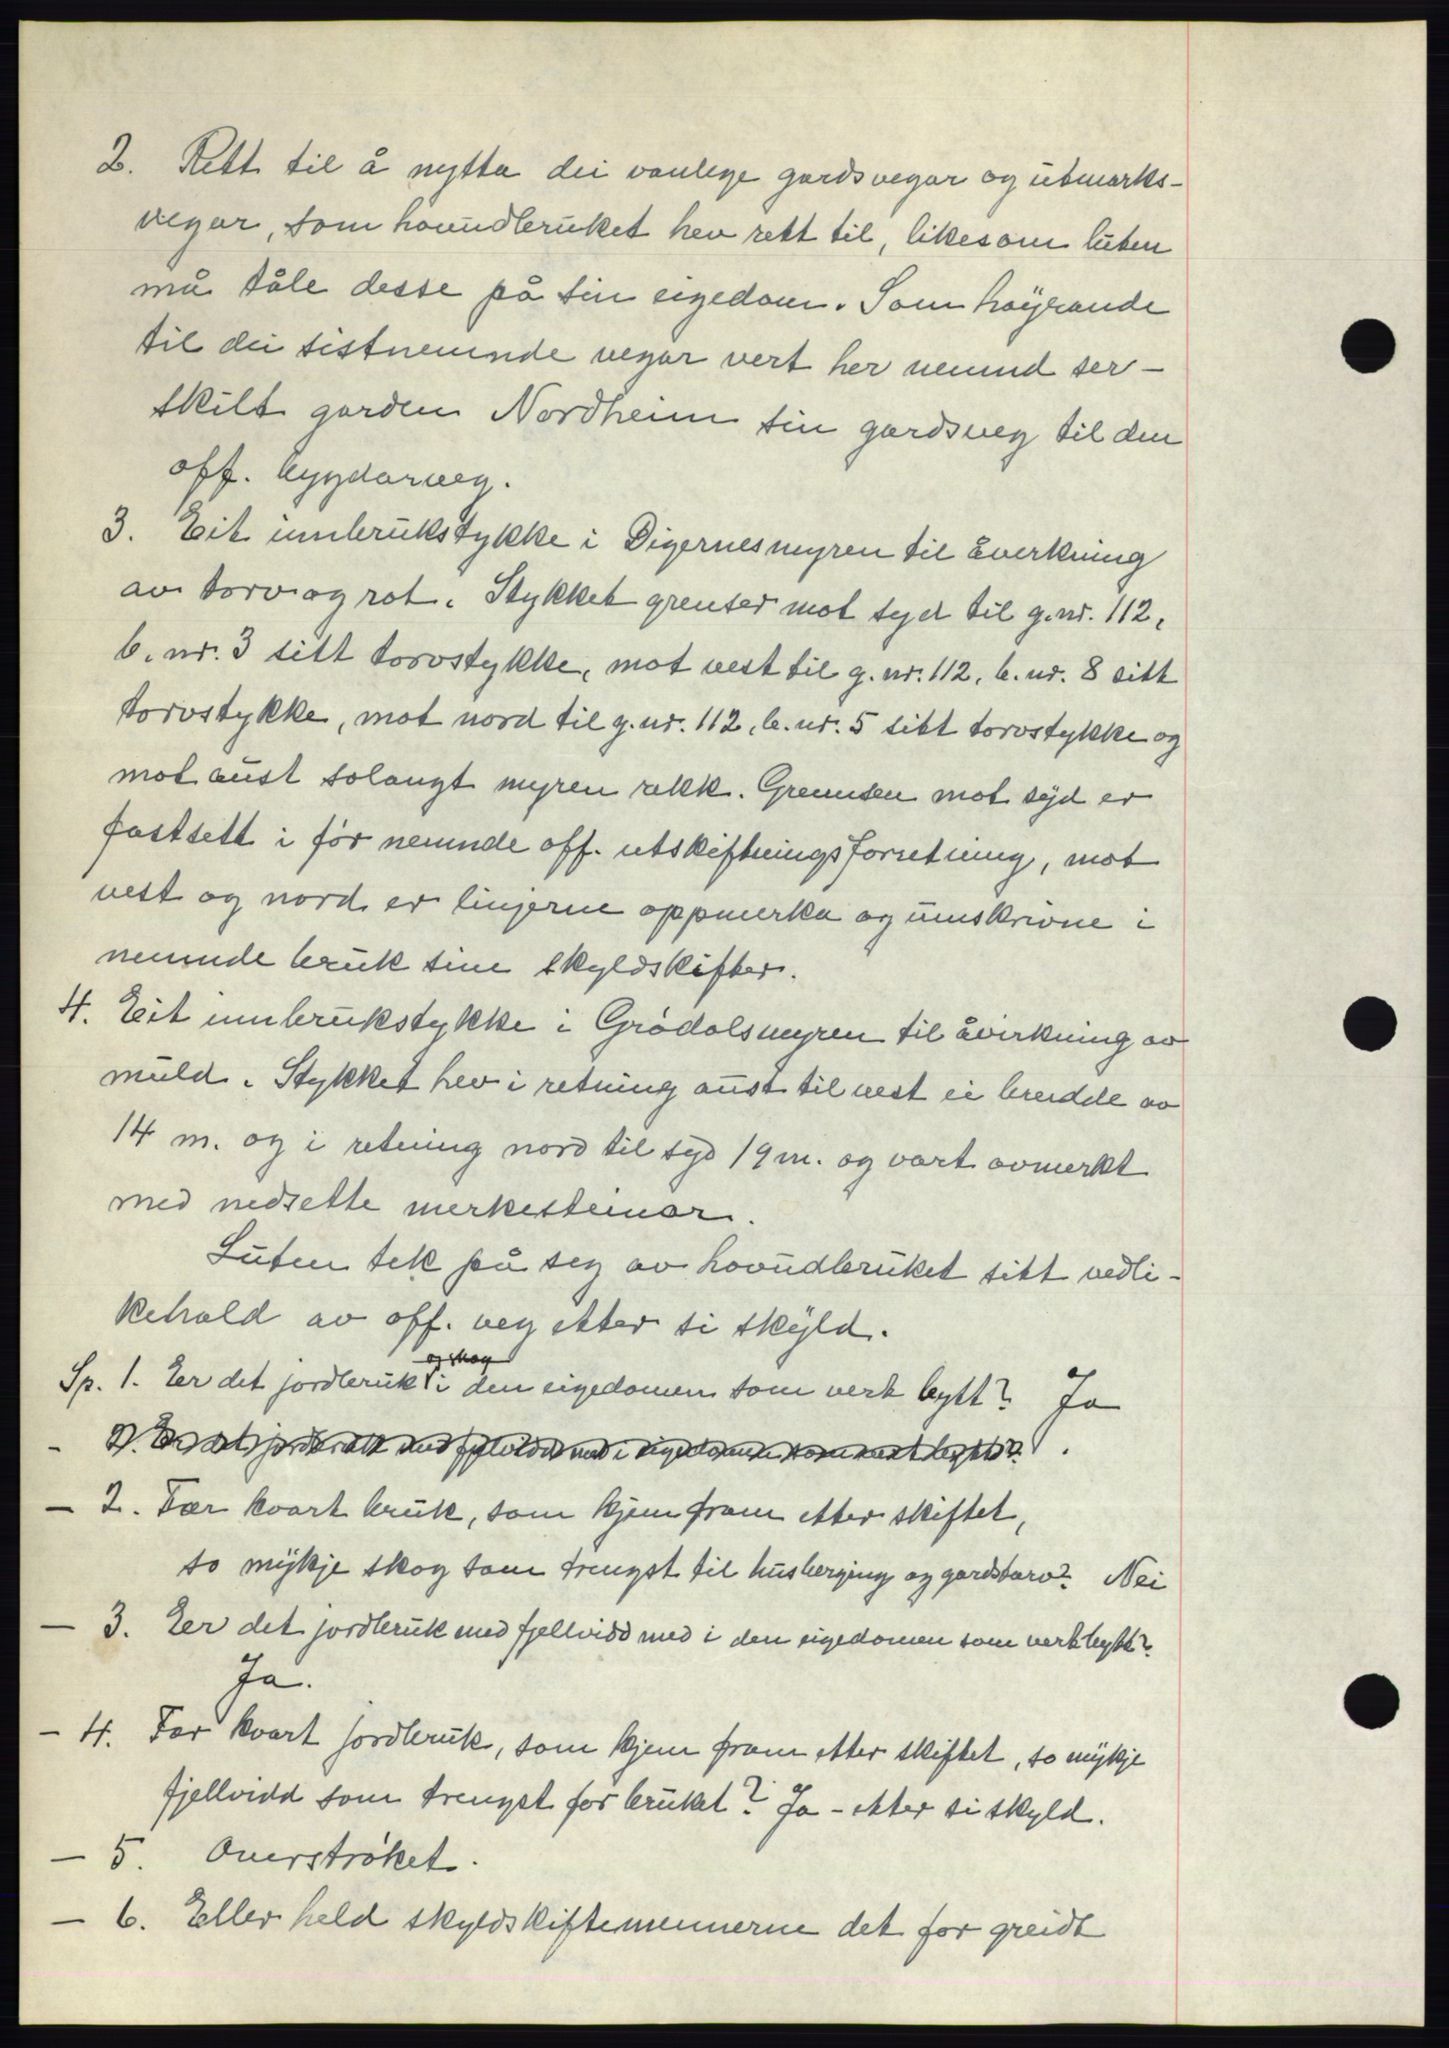 2. Rett til å nytta dei vanlege gardsvegar og utmarks-
vegar, som hovudbruket hev rett til, likesom luten
må tåle desse på sin eigedom. Som høyrande
til dei sistnemnde vegar vert her nemnd ser-
skilt garden Nordheim sin gardsveg til den
off. bygdarveg.
3. Eit innbrukstykke i Digernesmyren til åverkning
av torv og rot. Stykket grenser mot syd til g.nr. 112,
b.nr. 3 sitt torvstykke, mot vest til g.nr. 112, b.nr. 8 sitt
torvstykke, mot nord til g.nr. 112, b.nr. 5 sitt torvstykke og
mot aust solangt myren rekk. Grensen mot syd er
fastsett i før nemnde off. utskiftningsforretning, mot
vest og nord er linjerne oppmerka og umskrivne i
nemnde bruk sine skyldskifter.
4. Eit innbrukstykke i Grødalsmyren til åvirkning av
muld. Stykket hev i retning aust til vest ei breidde av
14 m. og i retning nord til syd 19 m. og vart avmerkt
med nedsette merkesteinar.
Luten tek på seg av hovudbruket sitt vedli-
kehald av off. veg etter si skyld.
og skog
Sp. 1. Er det jordbruk i den eigedomen som vert bytt? Ja
- 2. Er det jordbruk med fjellvidd med i eigedomen som vert bytt?
- 2. Fær kvart bruk, som kjem fram etter skiftet,
so mykje skog som trengst til husberging og gardstarv? Nei
- 3. Er det jordbruk med fjellvidd med i den eigedomen som vert bytt?
Ja.
- 4. Fær kvart jordbruk, som kjem fram etter skiftet, so mykje
fjellvidd som trengst for bruket? Ja - etter si skyld.
- 5. Overstrøket.
- 6. Eller held skyldskiftemennerne det for greidt